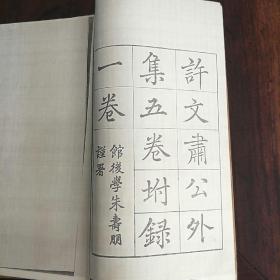 許文肅公外
集五卷坿録
一卷
館後學朱壽朋
謹署